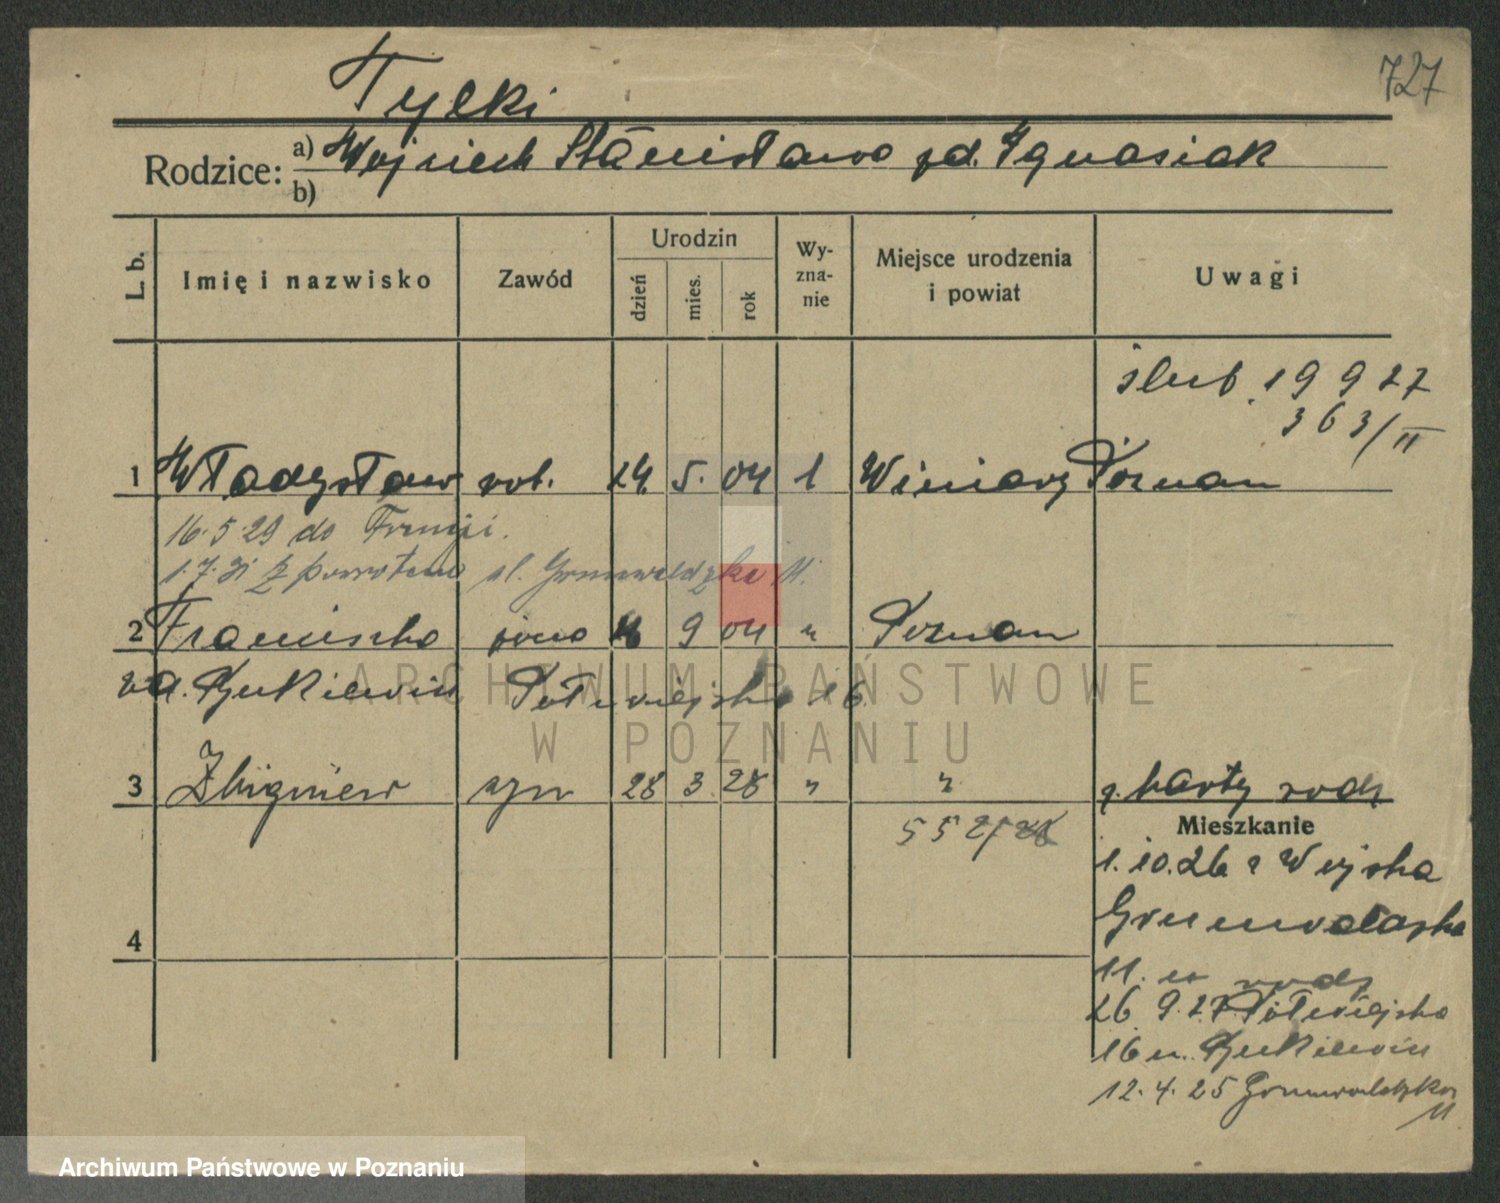 727
Tylki
Rodzice: a) Wojciech Stanisława zd. Ignasiak
b)
L. b.
Imię i nazwisko
Zawód
Urodzin
dzień
mies.
rok
Wy-
zna-
nie
Miejsce urodzenia
i powiat
Uwagi
ślub 19 9 27
363/II
1 Władysław rob. 24. 5. 04 1 Winiary Poznan
16.5.29 do Francji.
1.7.31 z powrotem ul. Grunwaldzka 11.
2 Franciszka żona 9 04 " Poznan
Półwiejska 16
3 Zbigniew syn 28 3 28 " "
z karty rodz
552/28
Mieszkanie
1.10.26 z Wojska
Grunwaldzka
11. u rodz
26 9.27 Półwiejska
16 u.
12.4.25 Grunwaldzka
11
4
ARCHIWUM PAŃSTWOWE
W POZNANIU
Archiwum Państwowe w Poznaniu